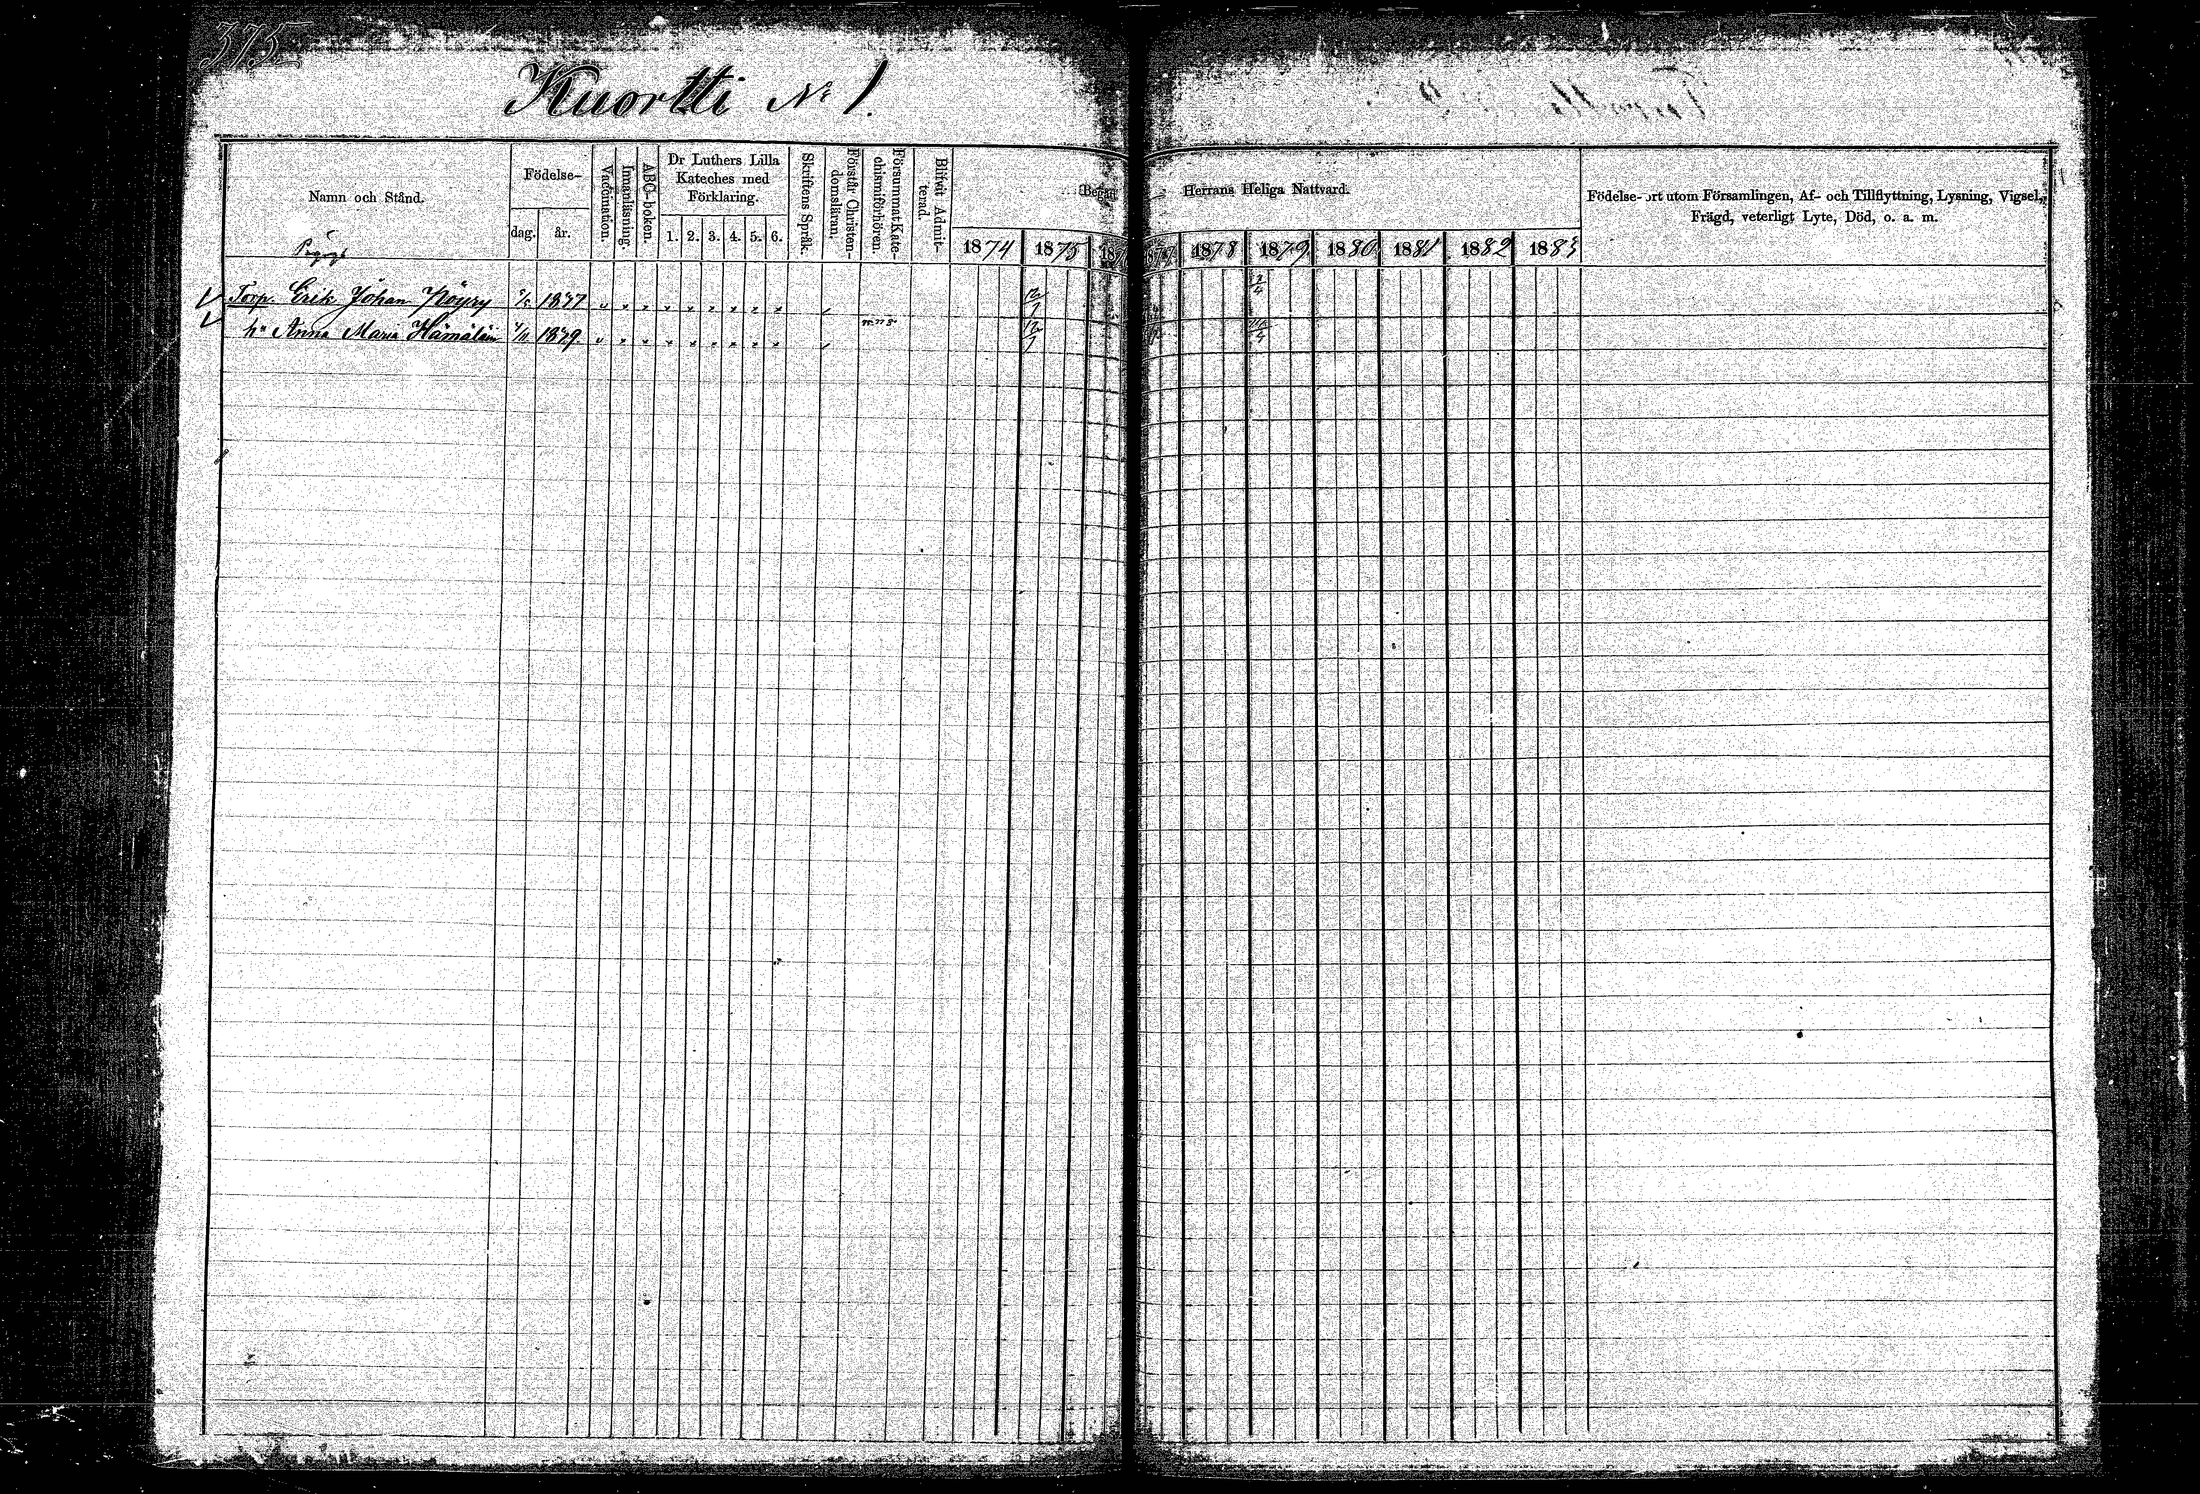 375
Kuortti № 1.
Namn och Stånd.
Födelse-
dag. år.
Vaccination.
Innanläsning.
ABC-boken.
Dr Luthers Lilla Kateches med Förklaring.
1. 2. 3. 4. 5. 6.
Skriftens Språk.
Förstår Christendomsläran.
Försummat Katechismiförhören.
Blifvit Admitterad.
Begått Herrans Heliga Nattvard.
1874 1875 187 1878 1879 1880 1881 1882 1883
Födelse-ort utom Församlingen, Af- och Tillflyttning, Lysning, Vigsel,
Frägd, veterligt Lyte, Död, o. a. m.
Torp. Erik Johan Pöyry 1837 12/7
hu Anna Maria Hämäläin 1839 12/7